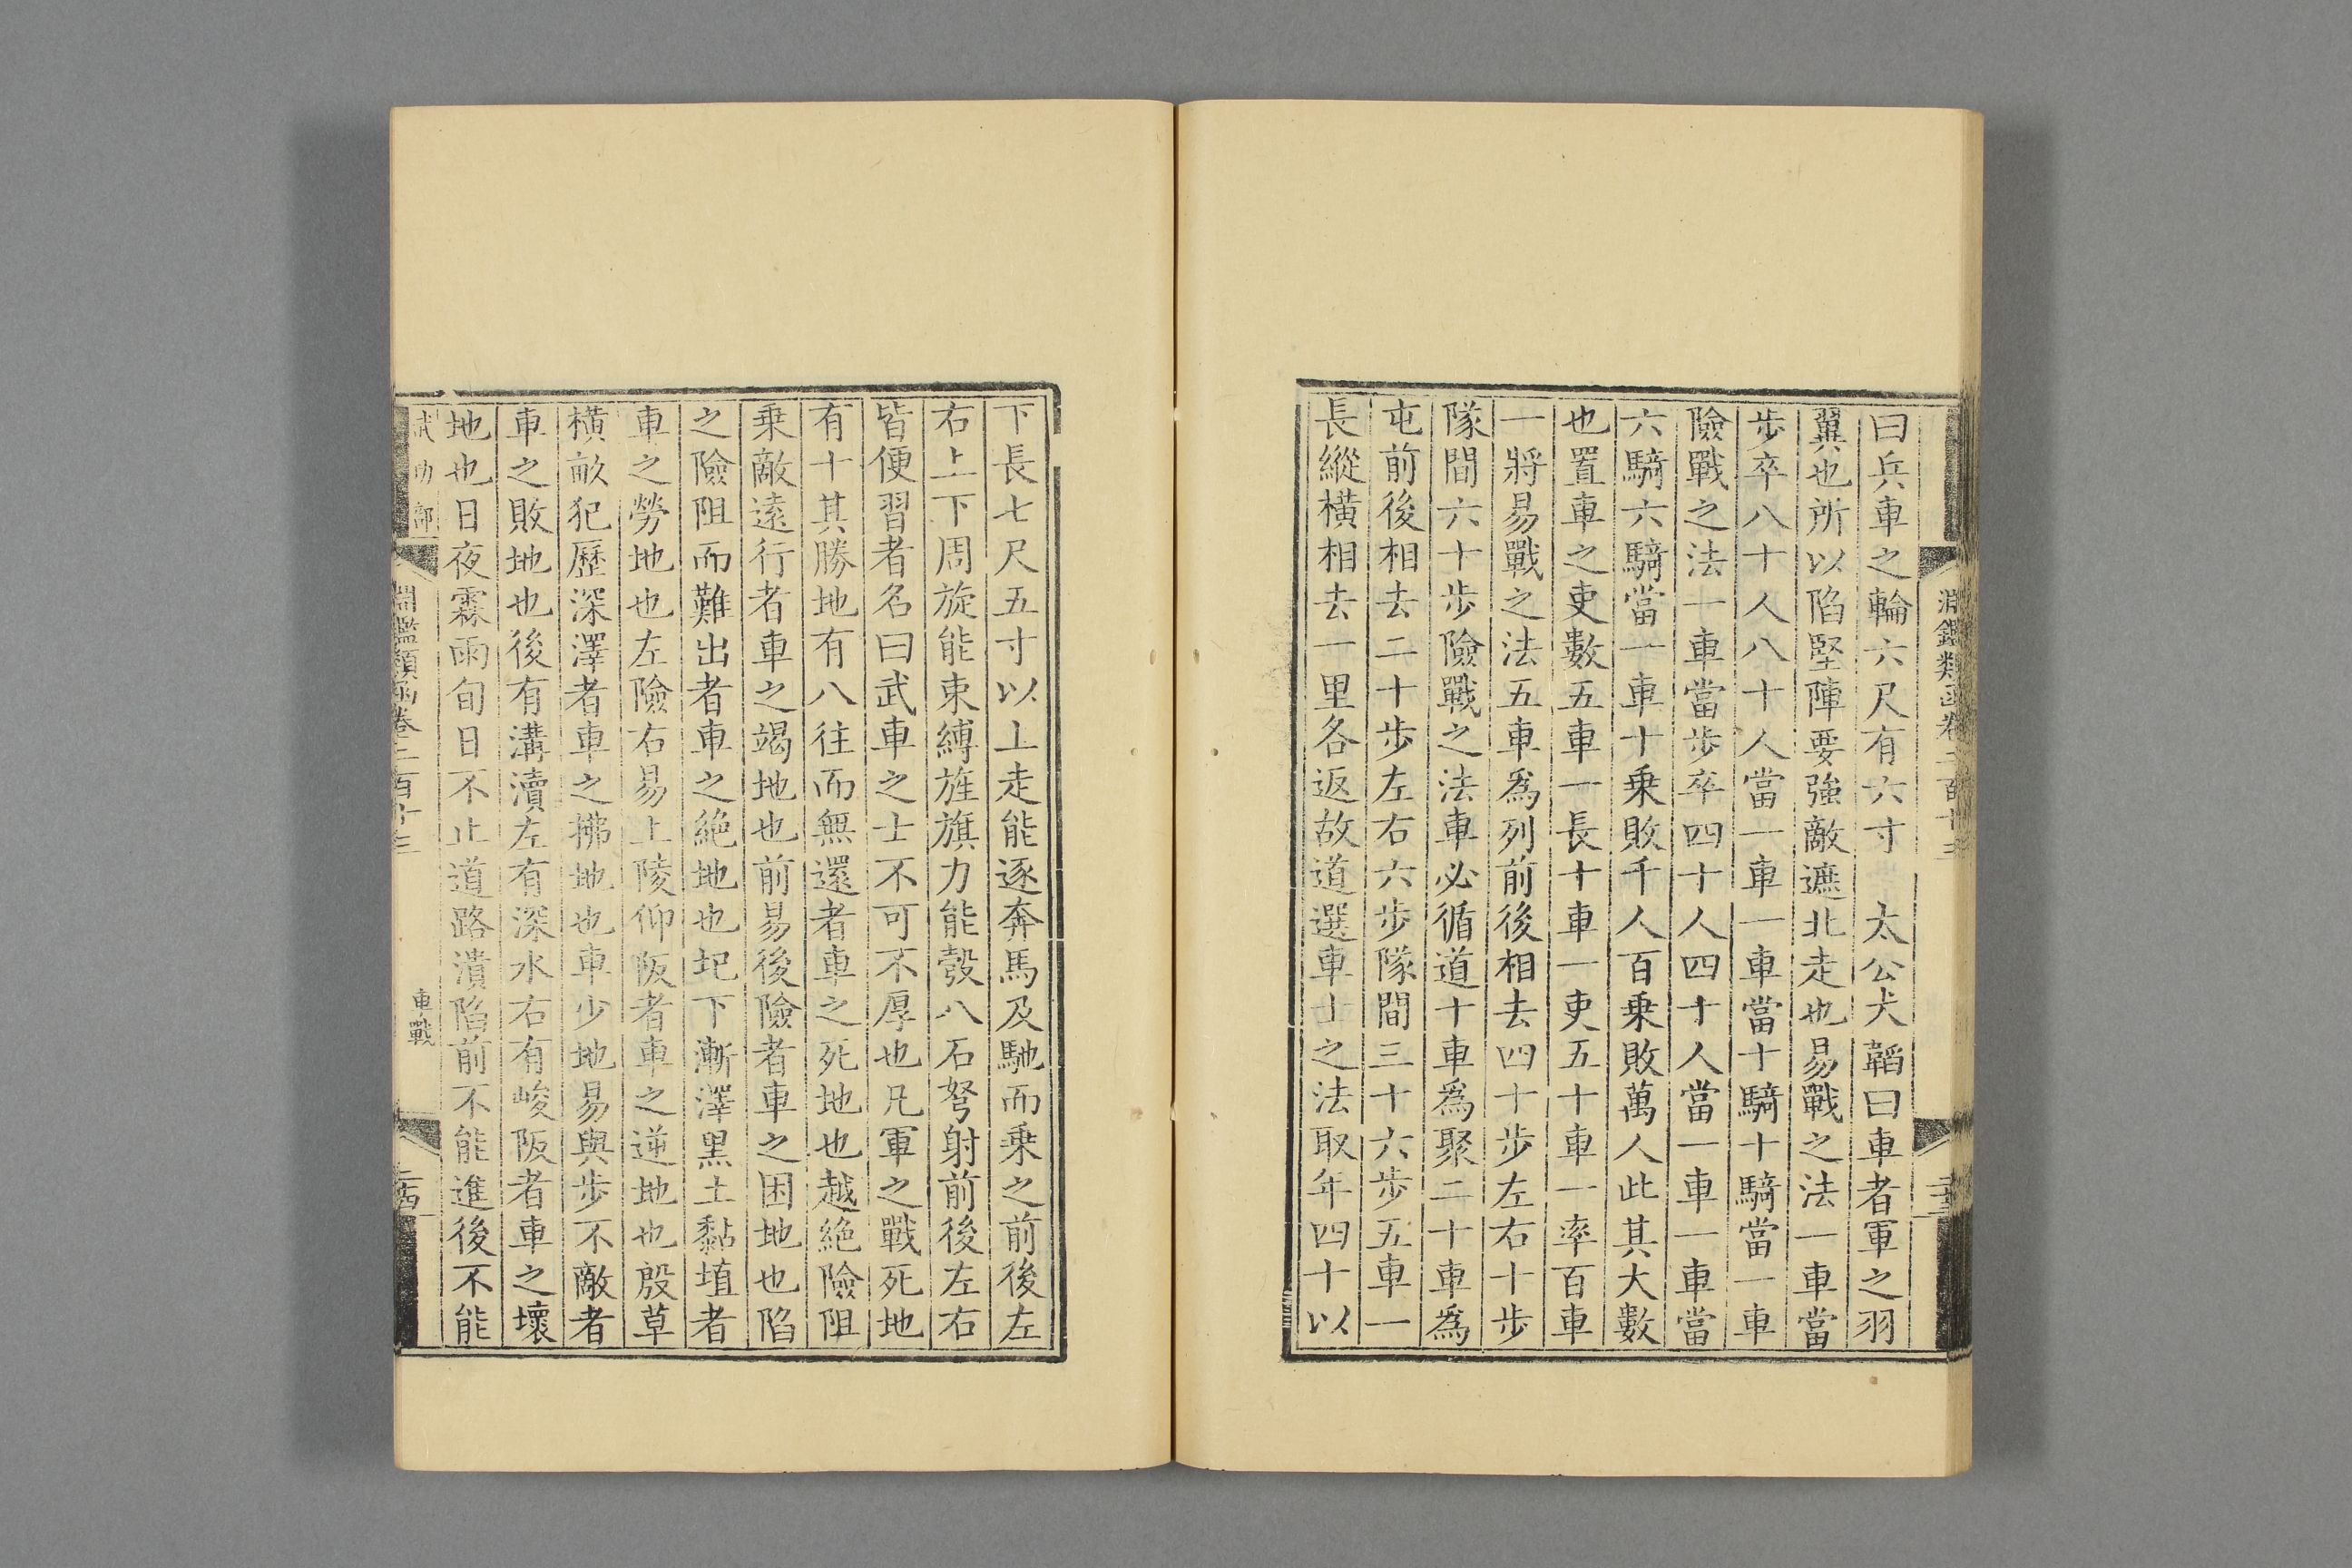 淵鑑類函卷二百十三
曰兵車之輪六尺有六寸　太公犬韜曰車者軍之羽
翼也所以陷堅陣要強敵遮北走也易戰之法一車當
步卒八十人八十人當一車一車當十騎十騎當一車
險戰之法一車當步卒四十人四十人當一車一車當
六騎六騎當一車十乗敗千人百乗敗萬人此其大數
也置車之吏數五車一長十車一吏五十車一率百車
一將易戰之法五車爲列前後相去四十步左右十步
隊間六十步險戰之法車必循道十車爲聚二十車爲
屯前後相去二十步左右六步隊間三十六步五車一
長縱橫相去一里各返故道選車士之法取年四十以
下長七尺五寸以上走能逐奔馬及馳而乗之前後左
右上下周旋能束縛旌旗力能彀八石弩射前後左右
皆便習者名曰武車之士不可不厚也凡軍之戰死地
有十其勝地有八往而無還者車之死地也越絶險阻
乗敵遠行者車之竭地也前易後險者車之困地也陷
之險阻而難出者車之絶地也圯下漸澤黒土黏埴者
車之勞地也左險右易上陵仰阪者車之逆地也殷草
橫畝犯歷深澤者車之拂地也車少地易與步不敵者
車之敗地也後有溝瀆左有深水右有峻阪者車之壞
地也日夜霖雨旬日不止道路潰陷前不能進後不能
武功部
淵鑑類函卷二百十三
車戰